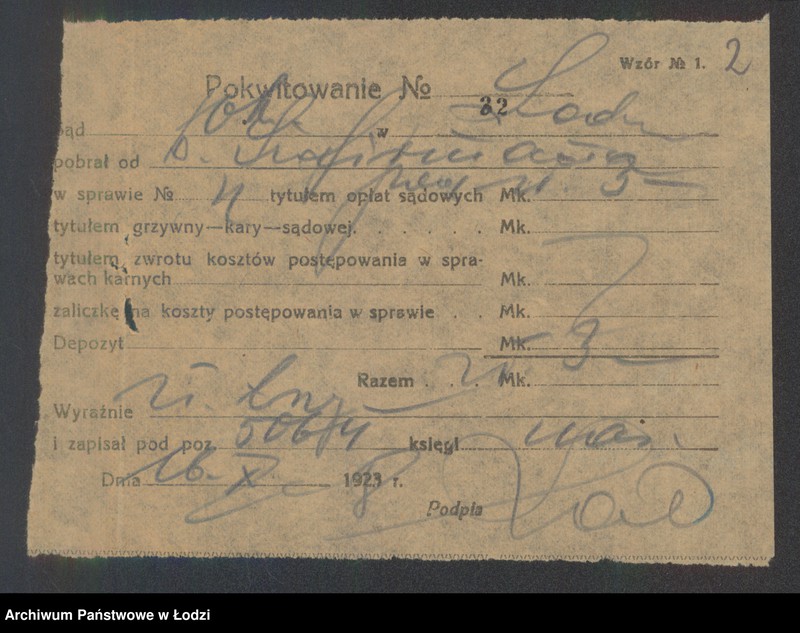 Wzór № 1. 2
Pokwitowanie № 32
Sąd w Łodzi
pobrał od
w sprawie № tytułem opłat sądowych Mk. zł. 3
tytułem grzywny—kary—sądowej. Mk.
tytułem zwrotu kosztów postępowania w spra-
wach karnych Mk.
zaliczkę na koszty postępowania w sprawie Mk.
Depozyt Mk.
Razem Mk. zł 3
Wyraźnie zł. trzy
i zapisał pod poz. 506/4 księgi
Dnia 16. X 1923 r. 8
Podpis
Archiwum Państwowe w Łodzi